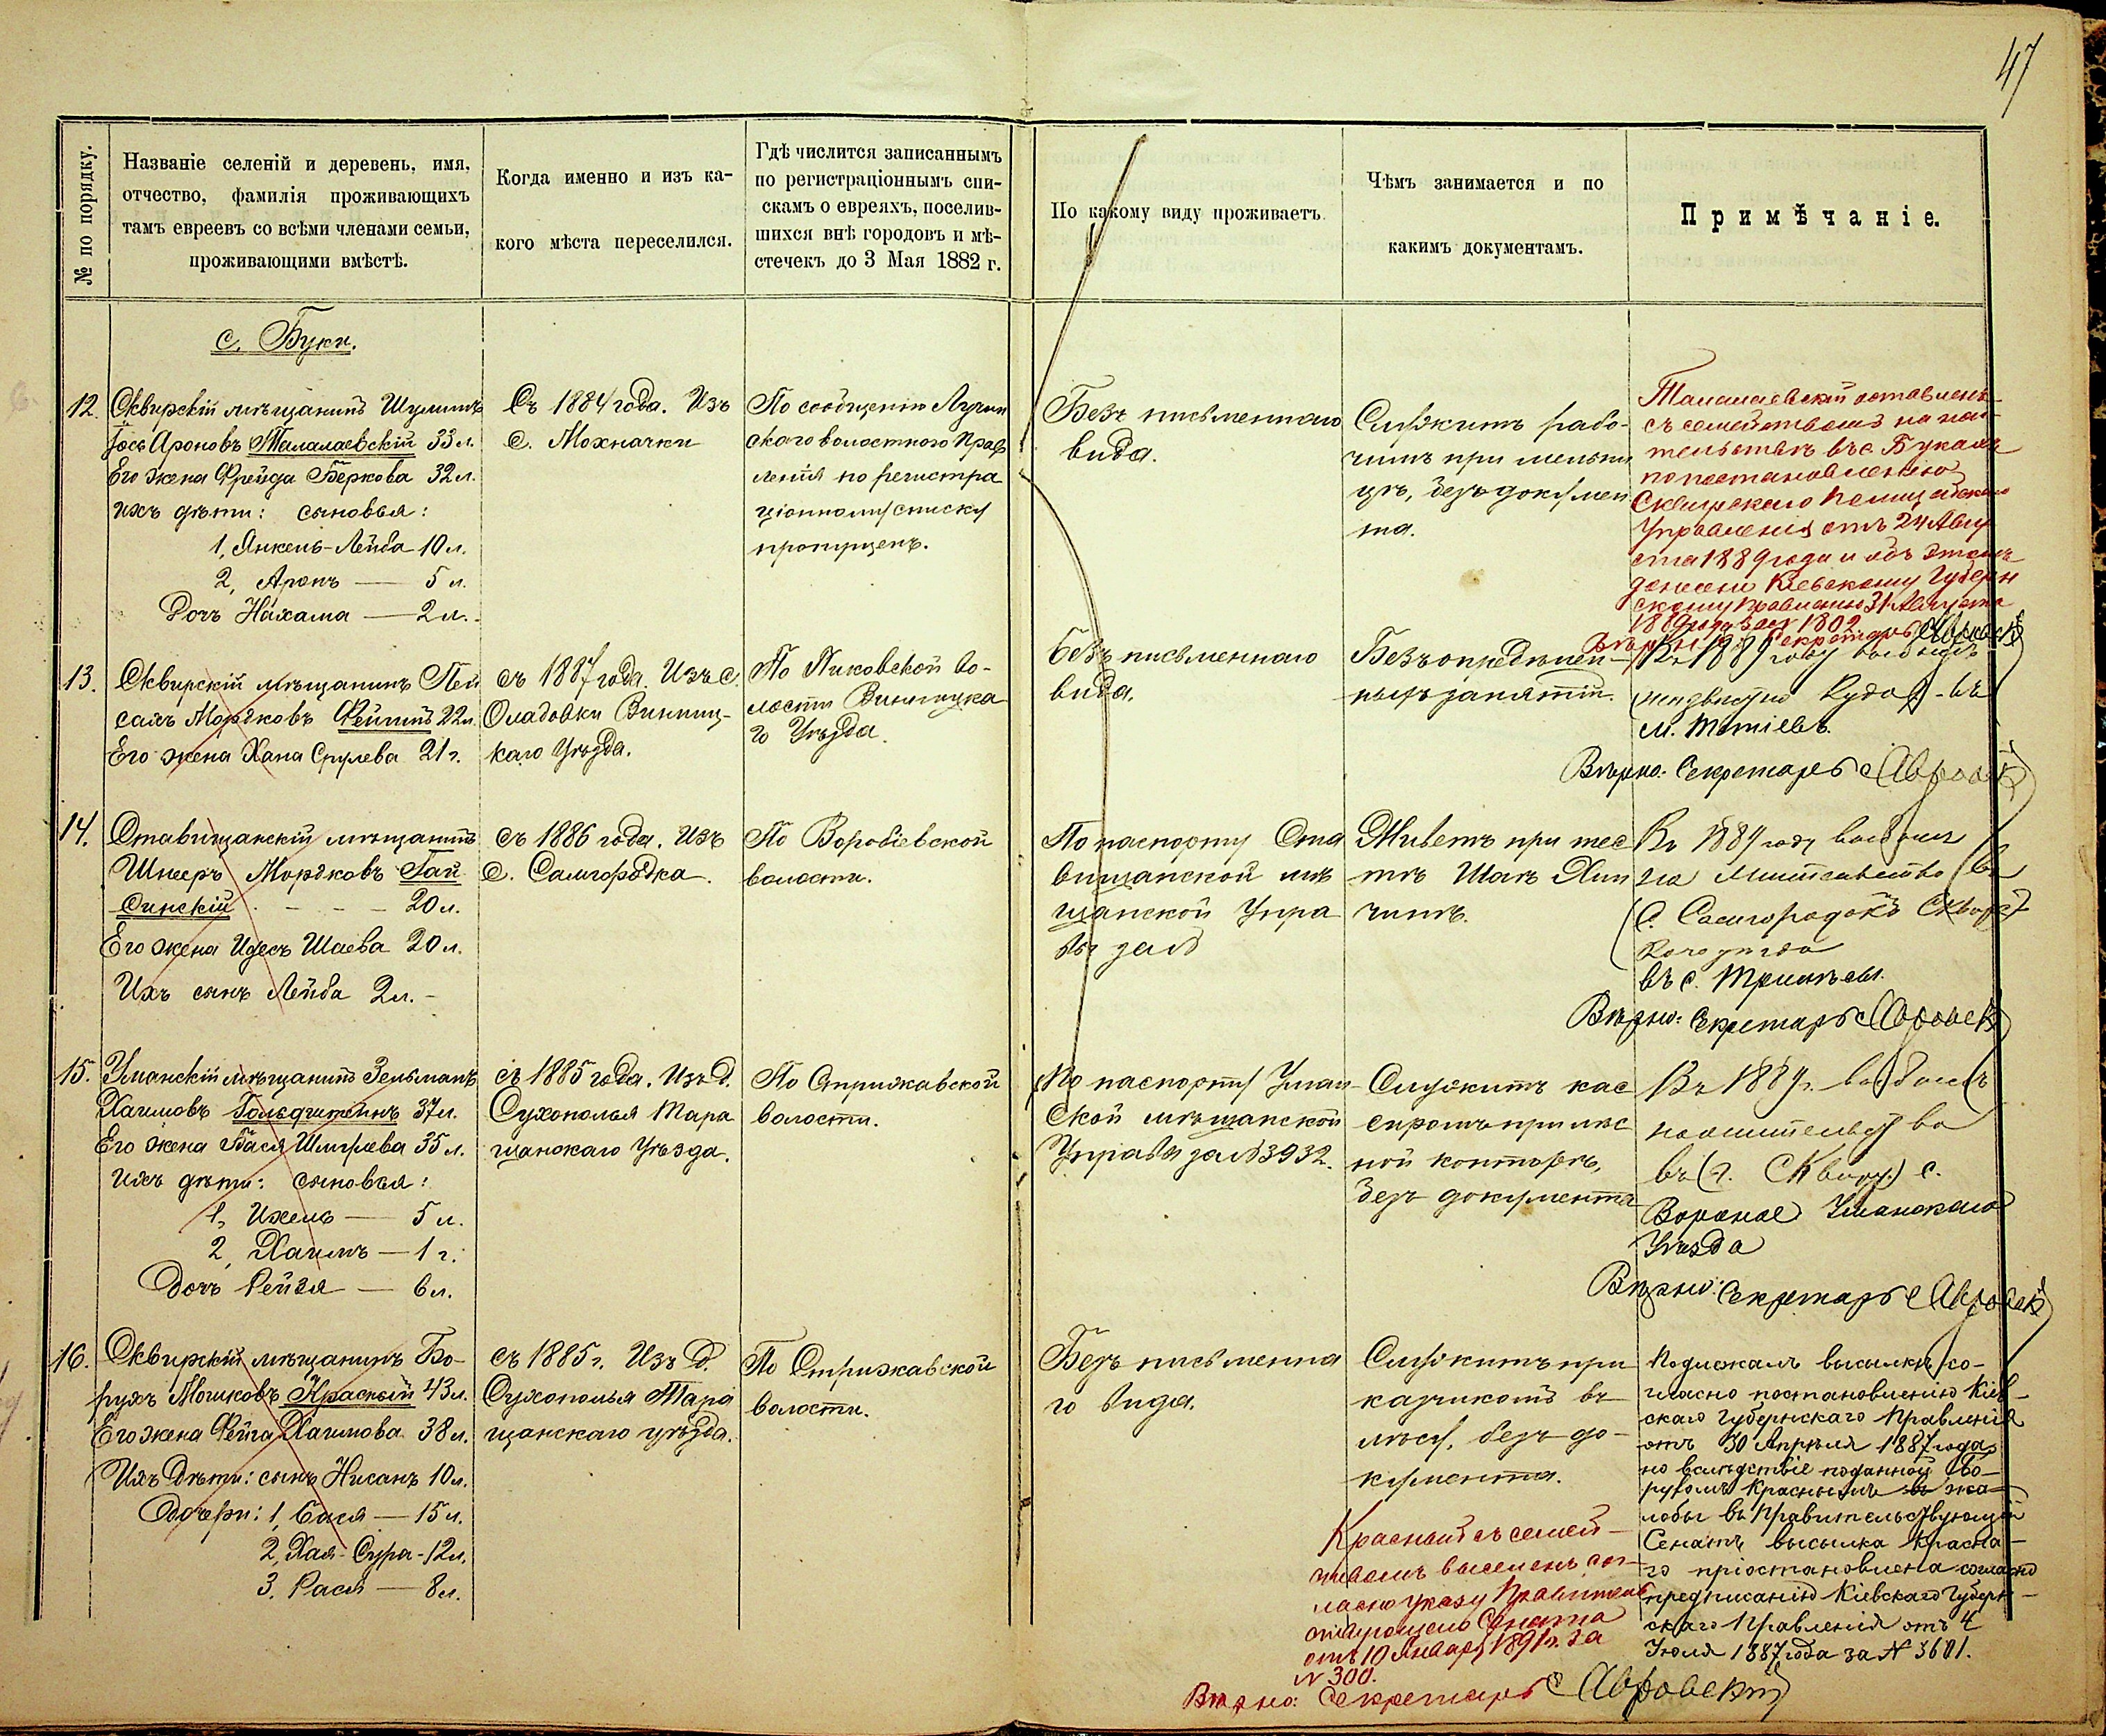 47
№ по порядку.
Названіе селеній и деревень, имя,
отчество, фамилія проживающихъ
тамъ евреевъ со всѣми членами семьи,
проживающими вмѣстѣ.
Когда именно и изъ ка-
кого мѣста переселился.
Гдѣ числится записаннымъ
по регистраціоннымъ спи-
скамъ о евреяхъ, поселив-
шихся внѣ городовъ и мѣ-
стечекъ до 3 Мая 1882 г.
По какому виду проживаетъ.
Чѣмъ занимается и по
какимъ документамъ.
Примѣчаніе.
с. Буки.
12.
Сквирскій мѣщанинъ Шулимъ
Іосъ Ароновъ Талалаевскій 33 л.
Его жена Фрейда Беркова 32 л.
ихъ дѣти: сыновья:
1, Янкель-Лейба 10 л.
2, Аронъ — 5 л.
Дочь Нахама — 2 л.
Съ 1884 года. Изъ
с. Мохначки
По сообщенію Лучин
скаго волостного Прав
ленія по регистра
ціонному списку
пропущенъ.
Безъ письменнаго
вида.
Служитъ рабо-
чимъ при мельни
цѣ, безъ докумен
та.
Талалаевскій оставленъ
съ семействомъ на жи-
тельствѣ въ с. Букахъ
по постановленію
Сквирскаго Полицейскаго
Управленія отъ 24 Авгу
ста 1889 года и объ этомъ
донесено Кіевскому Губерн
скому Правленію 31 Августа
1889 года за № 1802
Вѣрно: Секретарь
13.
Сквирскій мѣщанинъ Пей
сахъ Мордковъ Фейгинъ 22 л.
Его жена Хана Срулева 21 г.
съ 1887 года. Изъ с.
Оладовки Винниц-
каго Уѣзда.
По Пиковской во-
лости Винницка
го Уѣзда.
безъ письменнаго
вида.
Безъ опредѣлен-
ныхъ занятій.
Въ 1889 году выбылъ
въ
м. Тетіевъ.
Вѣрно: Секретарь
14.
Ставищанскій мѣщанинъ
Шнееръ Мордковъ Гай
синскій - - - 20 л.
Его жена Идесъ Шаева 20 л.
Ихъ сынъ Лейба 2 л. -
съ 1886 года. Изъ
с. Самгородка.
По Воробіевской
волости.
По паспорту Ста
вищанской мѣ
щанской Упра
вы за №
Живетъ при тес
тѣ Шаѣ Хин
чинѣ.
Въ 1889 году выбылъ
на жительство въ
(с. Самгородокъ Сквирс
каго уѣзда
въ с.
Вѣрно: Секретарь
15.
Уманскій мѣщанинъ Зельманъ
Хаимовъ Гольдштейнъ 37 л.
Его жена Бася Шмулева 35 л.
ихъ дѣти: сыновья:
1, Ихель — 5 л.
2, Хаимъ — 1 г.
Дочь Рейзя — 6 л.
съ 1885 года. Изъ д.
Сухополья Тара
щанскаго Уѣзда.
По Стрижавской
волости.
По паспорту Уман
ской мѣщанской
Управы за № 3932.
Служитъ кас
сиромъ при лѣс
ной конторѣ,
безъ документа
Въ 1889 г. выбылъ
на жительство
въ (г. Сквиру) с.
Вороное Уманскаго
Уѣзда
Вѣрно: Секретарь
16.
Сквирскій мѣщанинъ Бо-
рухъ Мошковъ Красный 43 л.
Его жена Фейга Хаимова 38 л.
Ихъ Дѣти: сынъ Нисанъ 10 л.
Дочери: 1, Бася — 15 л.
2, Хая-Сура - 12 л.
3. Рася — 8 л.
съ 1885 г. Изъ д.
Сухополья Тара
щанскаго уѣзда.
По Стрижавской
волости.
Безъ письменна
го вида.
Служитъ при
казчикомъ въ
лѣсу, безъ до-
кумента.
Красный съ семей-
ствомъ выселенъ сог-
ласно указу Правитель
ствующаго Сената
отъ 10 Января 1891 г. за
№ 300.
Подлежалъ высылкѣ со-
гласно постановленію Кіев-
скаго Губернскаго Правленія
отъ 30 Апрѣля 1887 года,
но вслѣдствіе поданной Бо-
рухомъ Краснымъ въ жа-
лобы въ Правительствующій
Сенатъ высылка Красна-
го пріостановлена согласно
предписанію Кіевскаго Губерн-
скаго Правленія отъ 4
Іюля 1887 года за № 3601.
Вѣрно: Секретарь